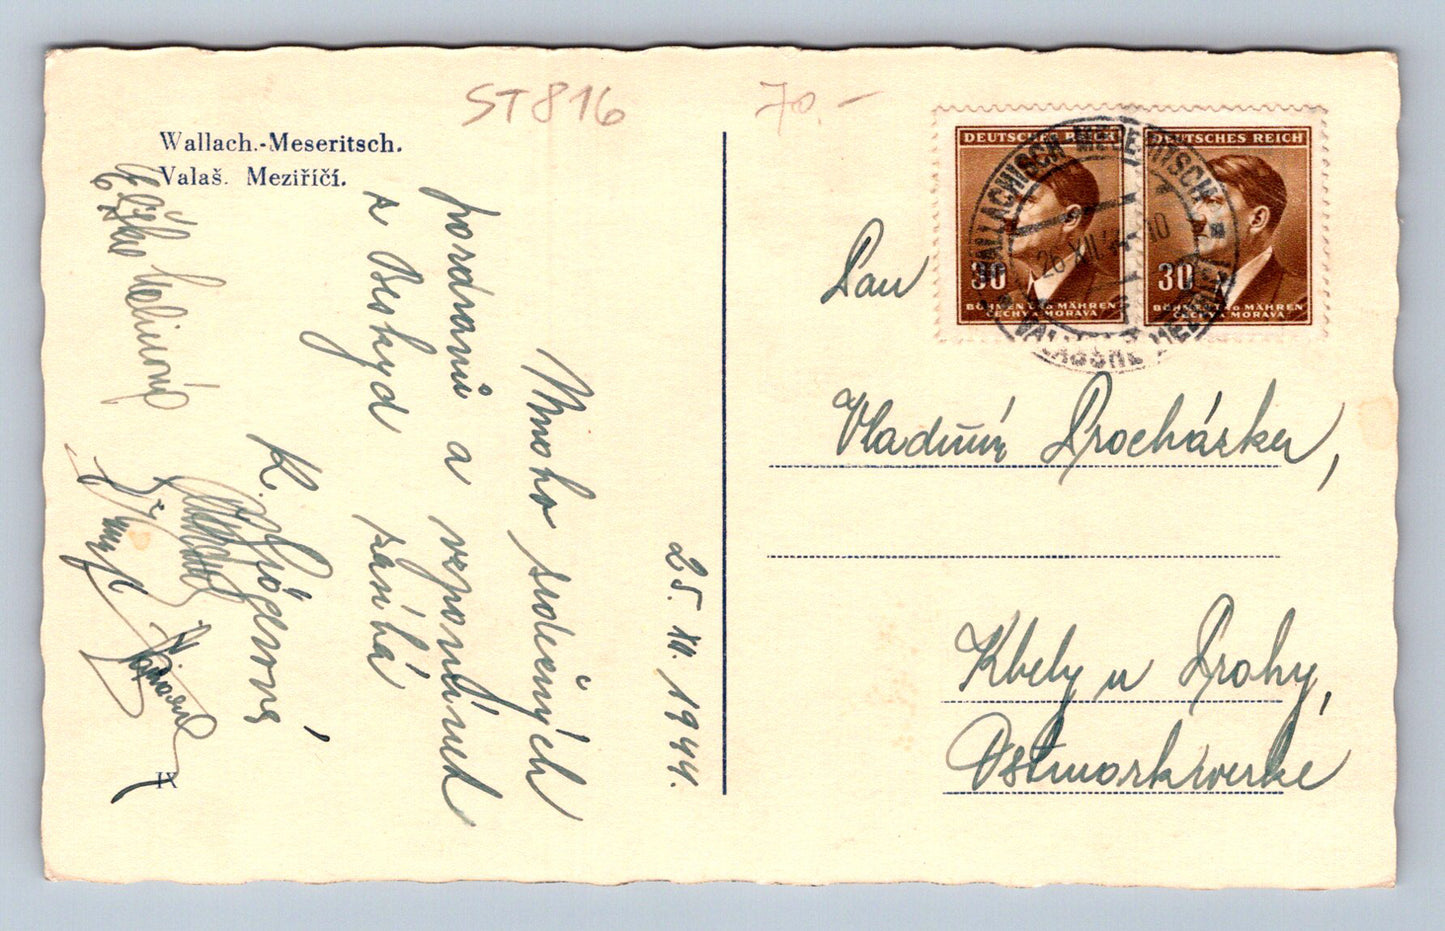 ST 816
70.-
Wallach.-Meseritsch.
Valaš. Meziříčí.
DEUTSCHES REICH
30
BÖHMEN UND MÄHREN
ČECHY A MORAVA
DEUTSCHES REICH
30
BÖHMEN UND MÄHREN
ČECHY A MORAVA
WALLACHISCH MESERITSCH
26 XII 44 10
VALAŠSKÉ MEZIŘÍČÍ
25. XII. 1944.
Mnoho srdečných
pozdravů a vzpomínek
z Beskyd
K.
Pan
Vladimír Procházka,
Kbely u Prahy,
Ostmarkwerke
IX